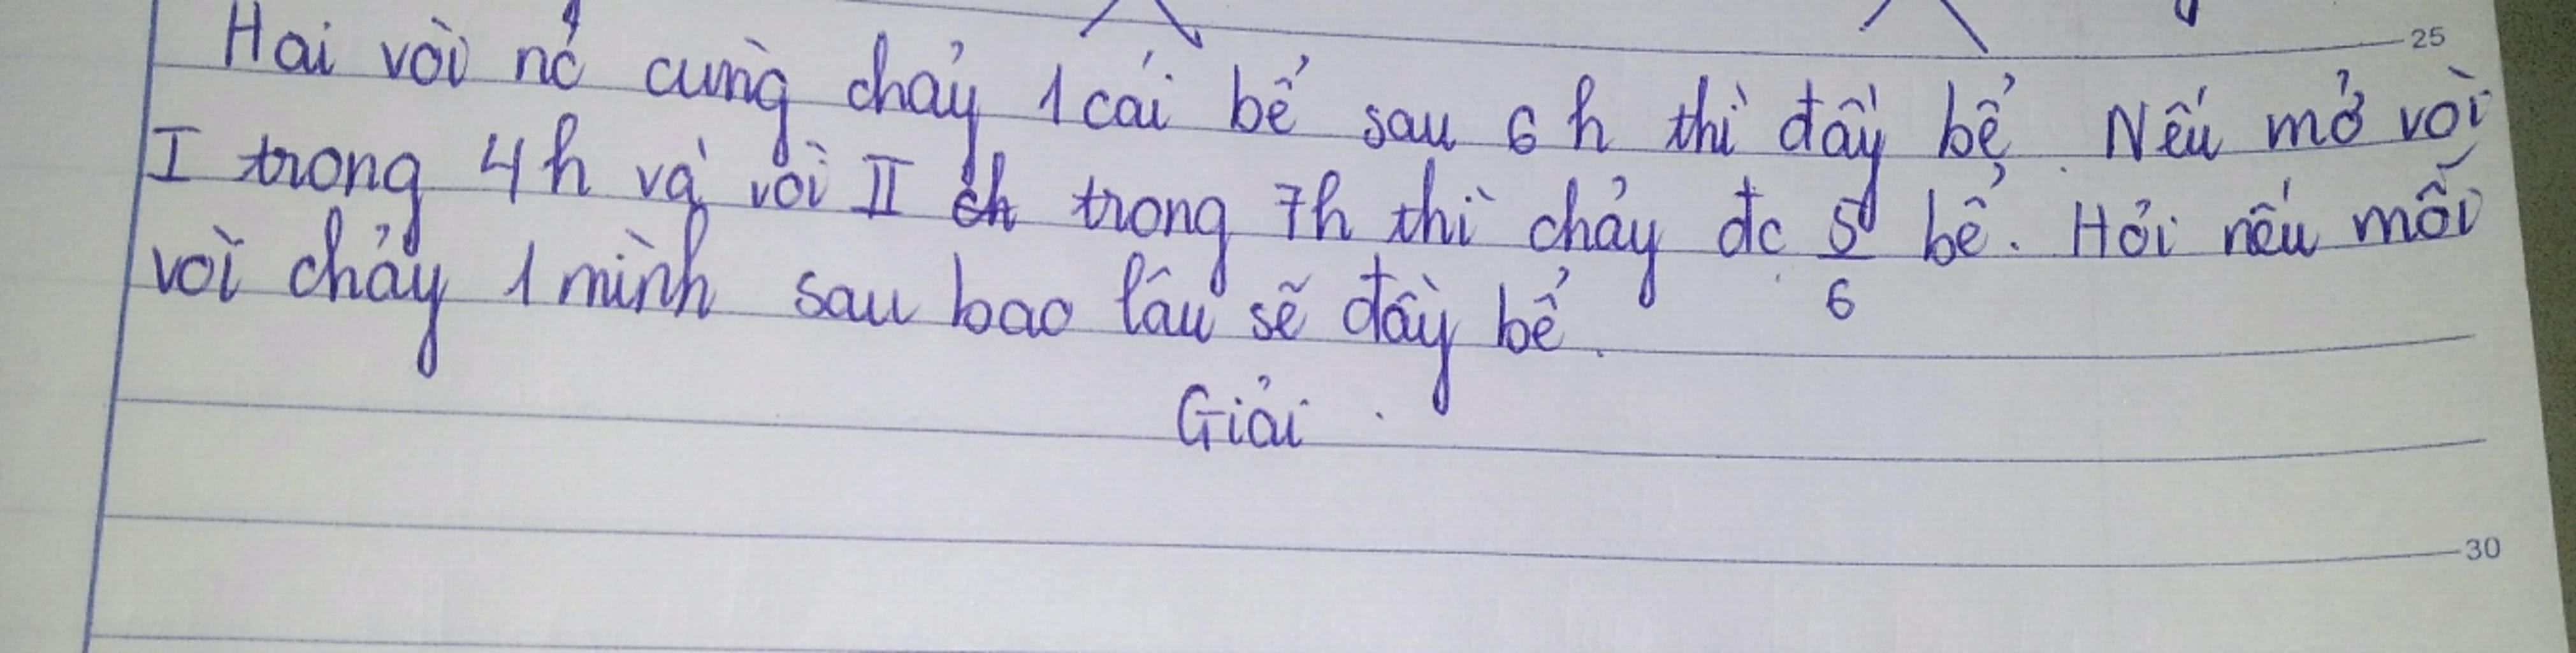 25
Hai vòi nc cùng chảy 1 cái bể sau 6h thì đầy bể. Nếu mở vòi
I trong 4h và vòi II ch trong 7h thì chảy đc 5/6 bể. Hỏi nếu mỗi
vòi chảy 1 mình sau bao lâu sẽ đầy bể.
Giải.
30